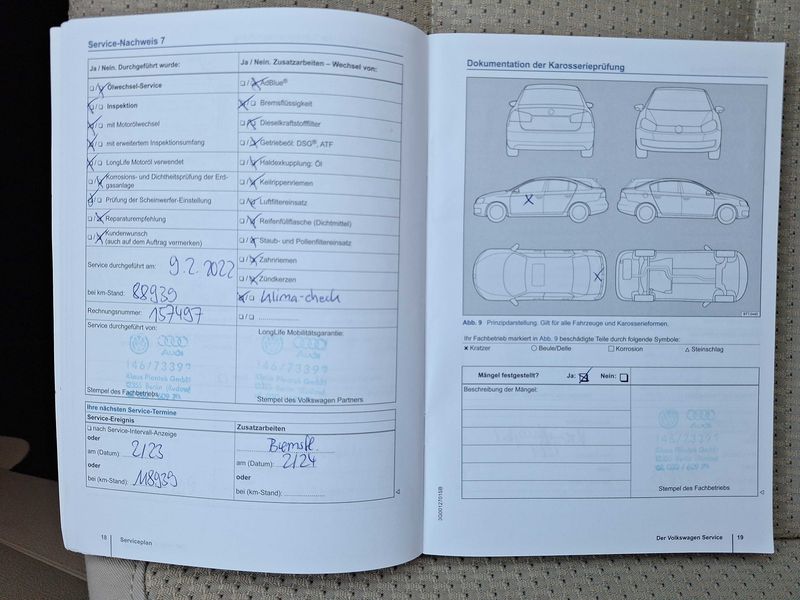 Service-Nachweis 7
Ja / Nein. Durchgeführt wurde:
Ölwechsel-Service
Inspektion
mit Motorölwechsel
mit erweitertem Inspektionsumfang
LongLife Motoröl verwendet
Korrosions- und Dichtheitsprüfung der Erd-
gasanlage
Prüfung der Scheinwerfer-Einstellung
Reparaturempfehlung
Kundenwunsch
(auch auf dem Auftrag vermerken)
Service durchgeführt am: 9.2.2022
bei km-Stand: 88939
Rechnungsnummer: 157497
Service durchgeführt von:
Audi
146/73399
Klaus Piontek GmbH
Stempel des Fachbetriebs
Ja / Nein. Zusatzarbeiten – Wechsel von:
AdBlue®
Bremsflüssigkeit
Dieselkraftstofffilter
Getriebeöl: DSG®, ATF
Haldexkupplung: Öl
Keilrippenriemen
Luftfiltereinsatz
Reifenfüllflasche (Dichtmittel)
Staub- und Pollenfiltereinsatz
Zahnriemen
Zündkerzen
Klima-check
LongLife Mobilitätsgarantie:
Audi
146/73399
Klaus Piontek GmbH
Stempel des Volkswagen Partners
Ihre nächsten Service-Termine
Service-Ereignis
nach Service-Intervall-Anzeige
oder
am (Datum): 2/23
oder
bei (km-Stand): 118939
Zusatzarbeiten
Bremsfl.
am (Datum): 2/24
oder
bei (km-Stand):
18 Serviceplan
Dokumentation der Karosserieprüfung
Abb. 9 Prinzipdarstellung. Gilt für alle Fahrzeuge und Karosserieformen.
Ihr Fachbetrieb markiert in Abb. 9 beschädigte Teile durch folgende Symbole:
Kratzer Beule/Delle Korrosion Steinschlag
Mängel festgestellt? Ja: Nein:
Beschreibung der Mängel:
Audi
146/73399
Klaus Piontek GmbH
Stempel des Fachbetriebs
3G0012701SB
Der Volkswagen Service 19